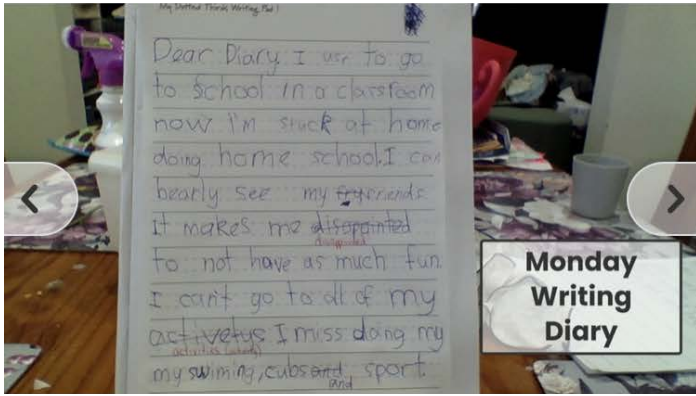 My Dotted Thirds Writing Pad!
Dear Diary I use to go
to school in a classroom
now i'm stuck at home
doing home school. I can
bearly see my fry friends.
It makes me disapointed
disappointed
to not have as much fun.
I can't go to all of my
activetys I miss doing my
activities
my swiming, cubs and sport
and
Monday
Writing
Diary